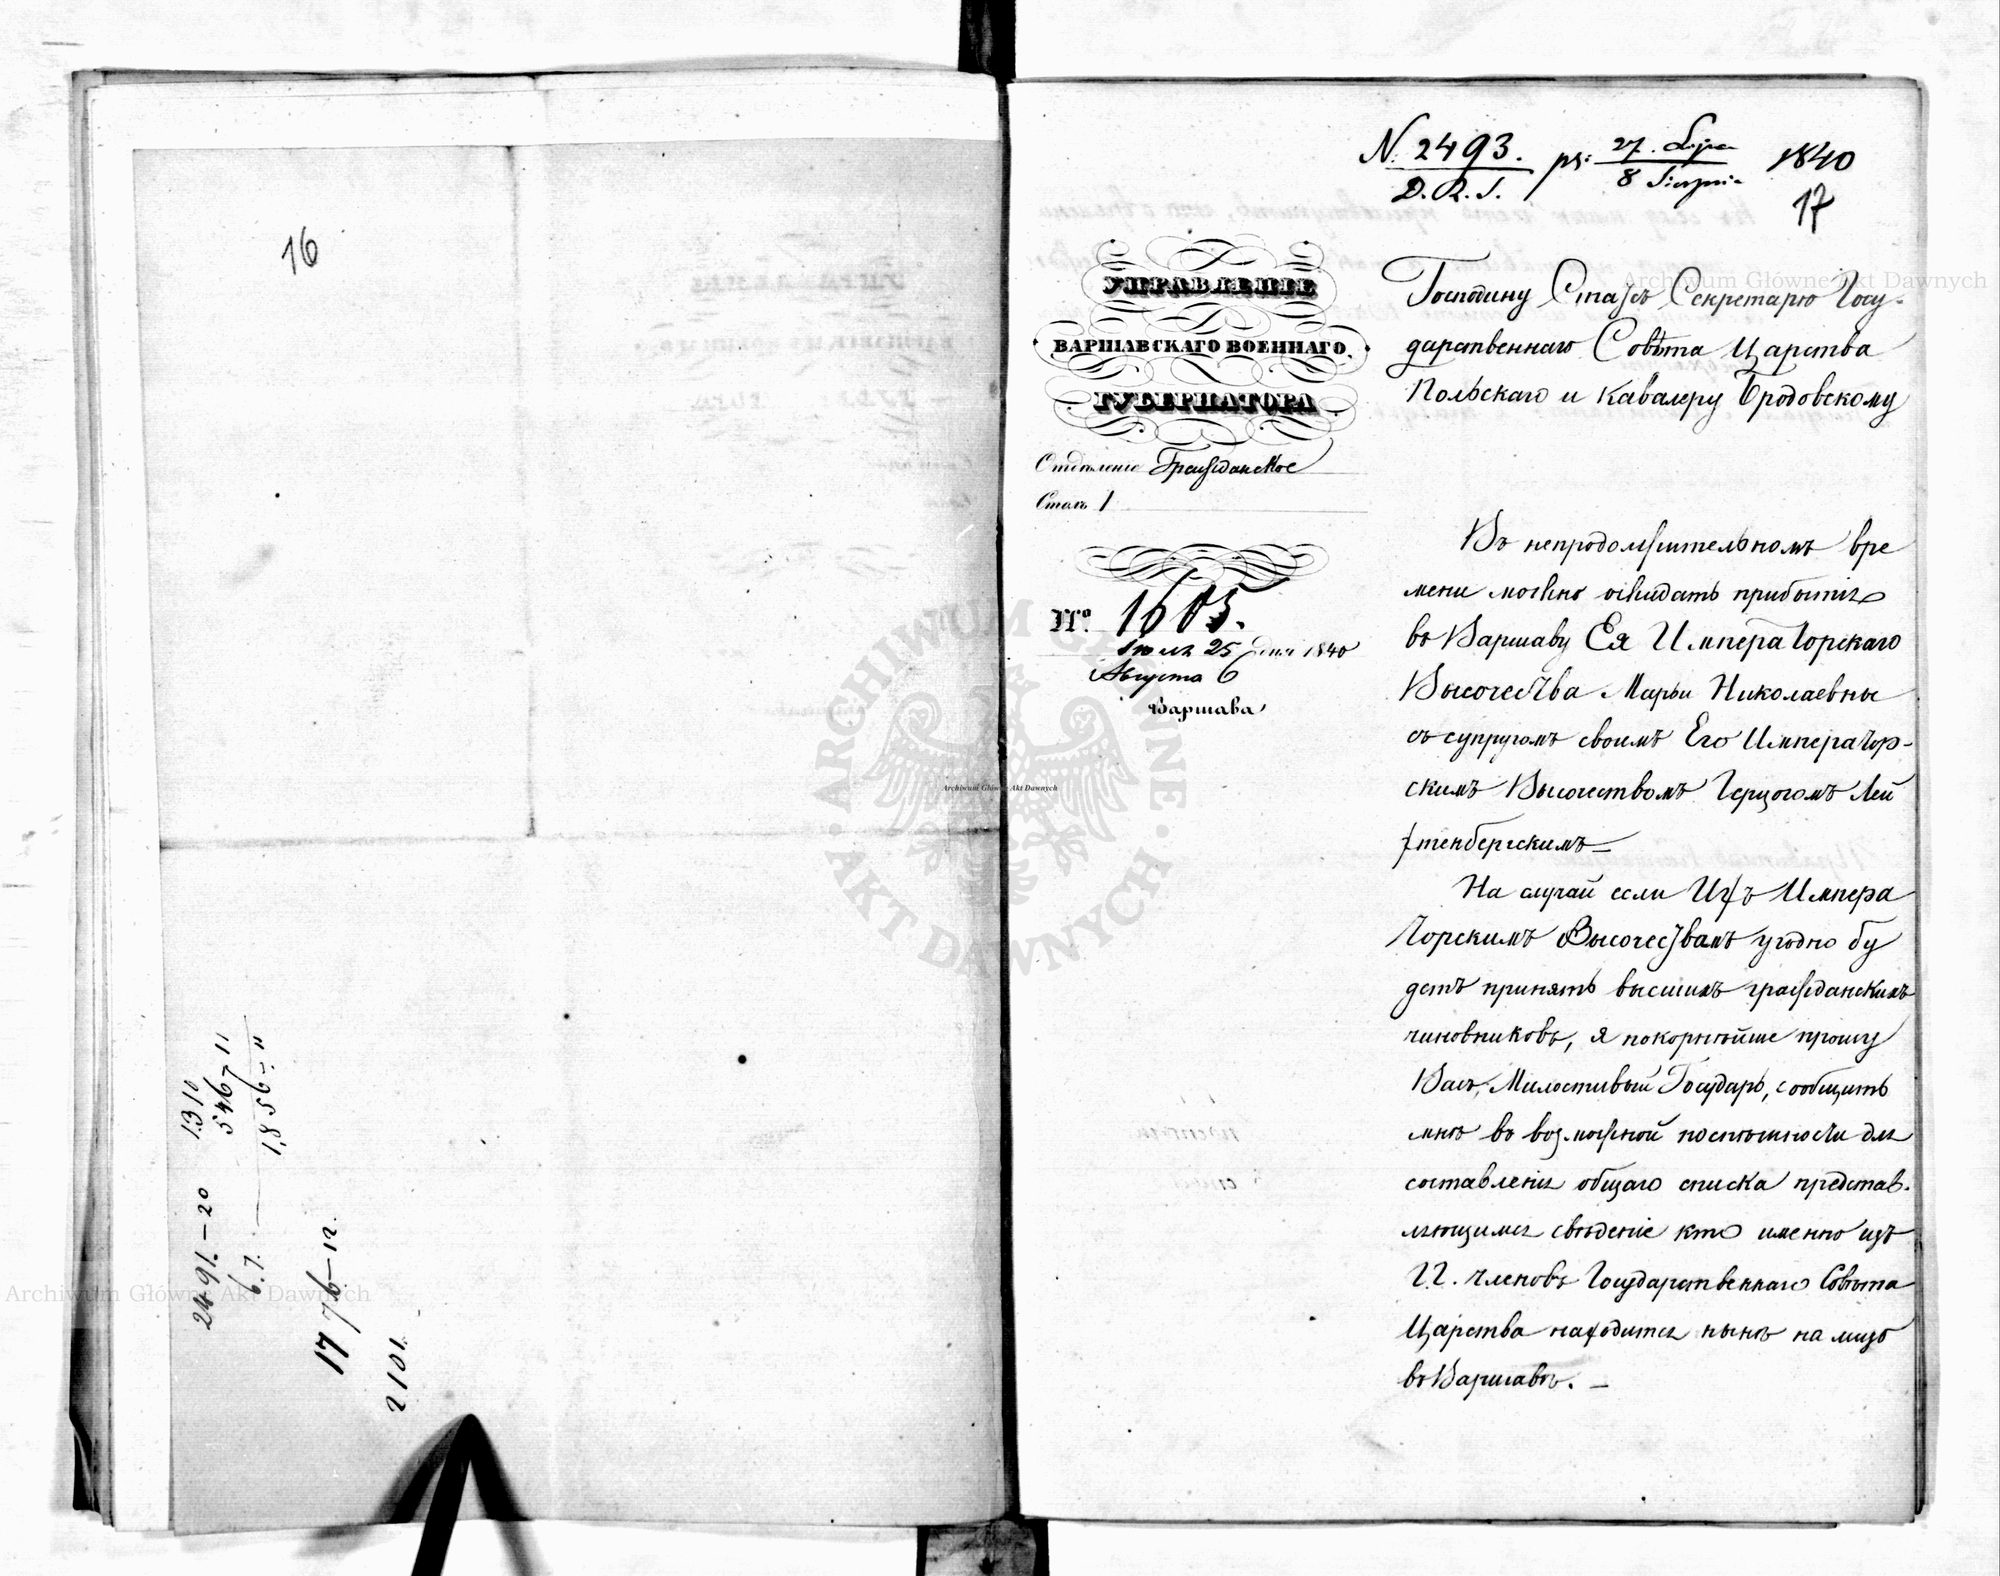 16
1310
546 11
1,856 - 11
2491. - 20
6.7. -
1776 - 12.
2101.
N. 2493. ps: 27. Lipca 1840
D. R. S. 8 Sierpnia
17
УПРАВЛЕНІЕ
ВАРШАВСКАГО ВОЕННАГО
ГУБЕРНАТОРА
Отдѣленіе Гражданское
Столъ 1
№ 1605.
Іюля 25 дня 1840
Августа 6
Варшава
Господину Статсъ Секретарю Госу-
дарственнаго Совѣта Царства
Польскаго и Кавалеру Бродовскому
Въ непродолжительномъ вре
мени можно ожидать прибытія
въ Варшаву Ея Императорскаго
Высочества Марьи Николаевны
съ супругомъ своимъ Его Император-
скимъ Высочествомъ Герцогомъ Лей
хтенбергскимъ
На случай если Ихъ Импера
торскимъ Высочествамъ угодно бу
детъ принять высшихъ гражданскихъ
чиновниковъ, я покорнѣйше прошу
Васъ, Милостивый Государь, сообщить
мнѣ въ возможной поспѣшности для
составленія общаго списка представ-
ляющимся свѣденіе кто именно изъ
Г.Г. членовъ Государственнаго Совѣта
Царства находится нынѣ на лицо
въ Варшавѣ. —
Archiwum Główne Akt Dawnych
ARCHIWUM GŁÓWNE
AKT DAWNYCH
Archiwum Główne Akt Dawnych
Archiwum Główne Akt Dawnych